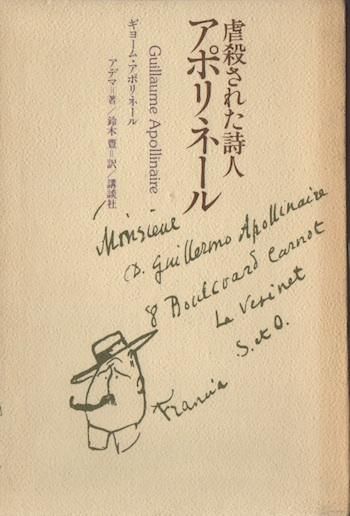 虐殺された詩人
アポリネール
Guillaume Apollinaire
ギヨーム・アポリネール
アデマ=著/鈴木豊=訳/講談社
Monsieur
D. Guillermo Apollinaire
8 Boulevard Carnot
Le Vesinet
S. et O.
Francia